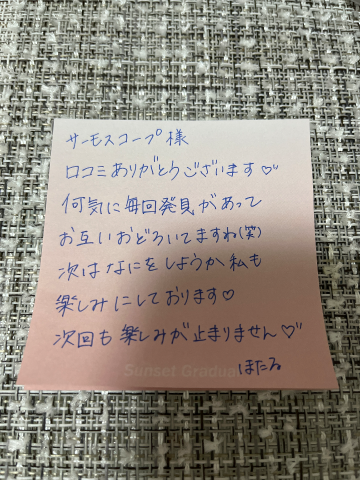 サーモスコープ様
口コミありがとうございます♡
何気に毎回発見があって
お互いおどろいてますね(笑)
次はなにをしようか私も
楽しみにしております♡
次回も楽しみが止まりません♡
Sunset Gradua
ほたる